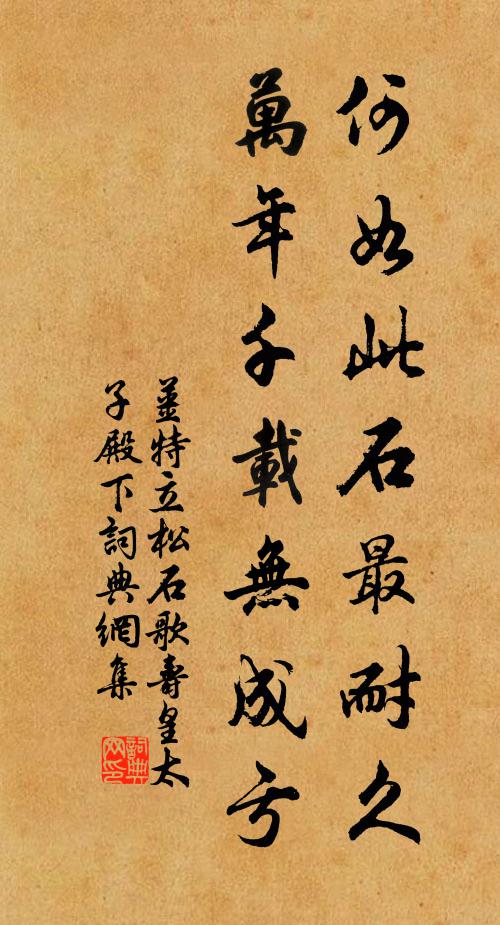 何如此石最耐久
萬年千載無成亏
姜特立松石歌壽皇太
子殿下詞典網集
詞典
网印